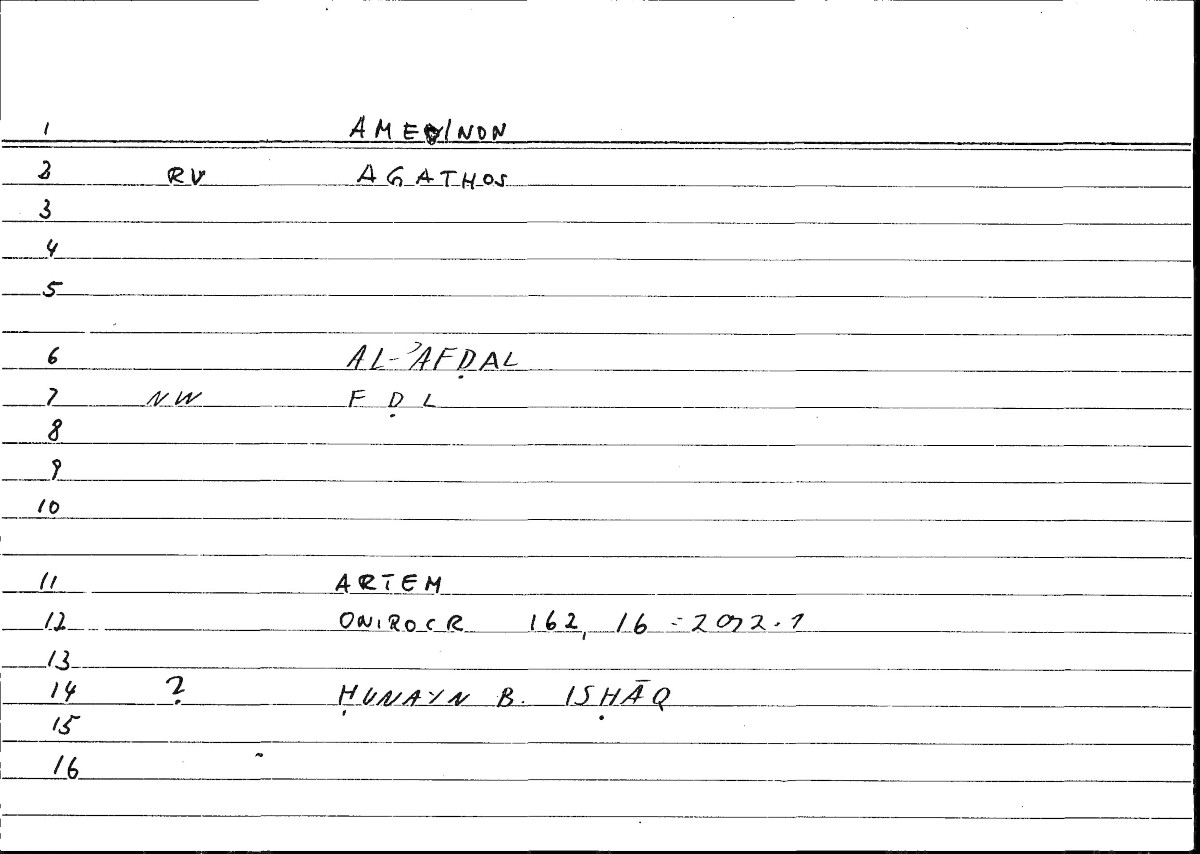 1 AMEINON
2 RV AGATHOS
3
4
5
6 AL-ʾAFḌAL
7 NW F Ḍ L
8
9
10
11 ARTEM
12 ONIROCR 162, 16 =
13
14 ? ḤUNAYN B. ISḤĀQ
15
16